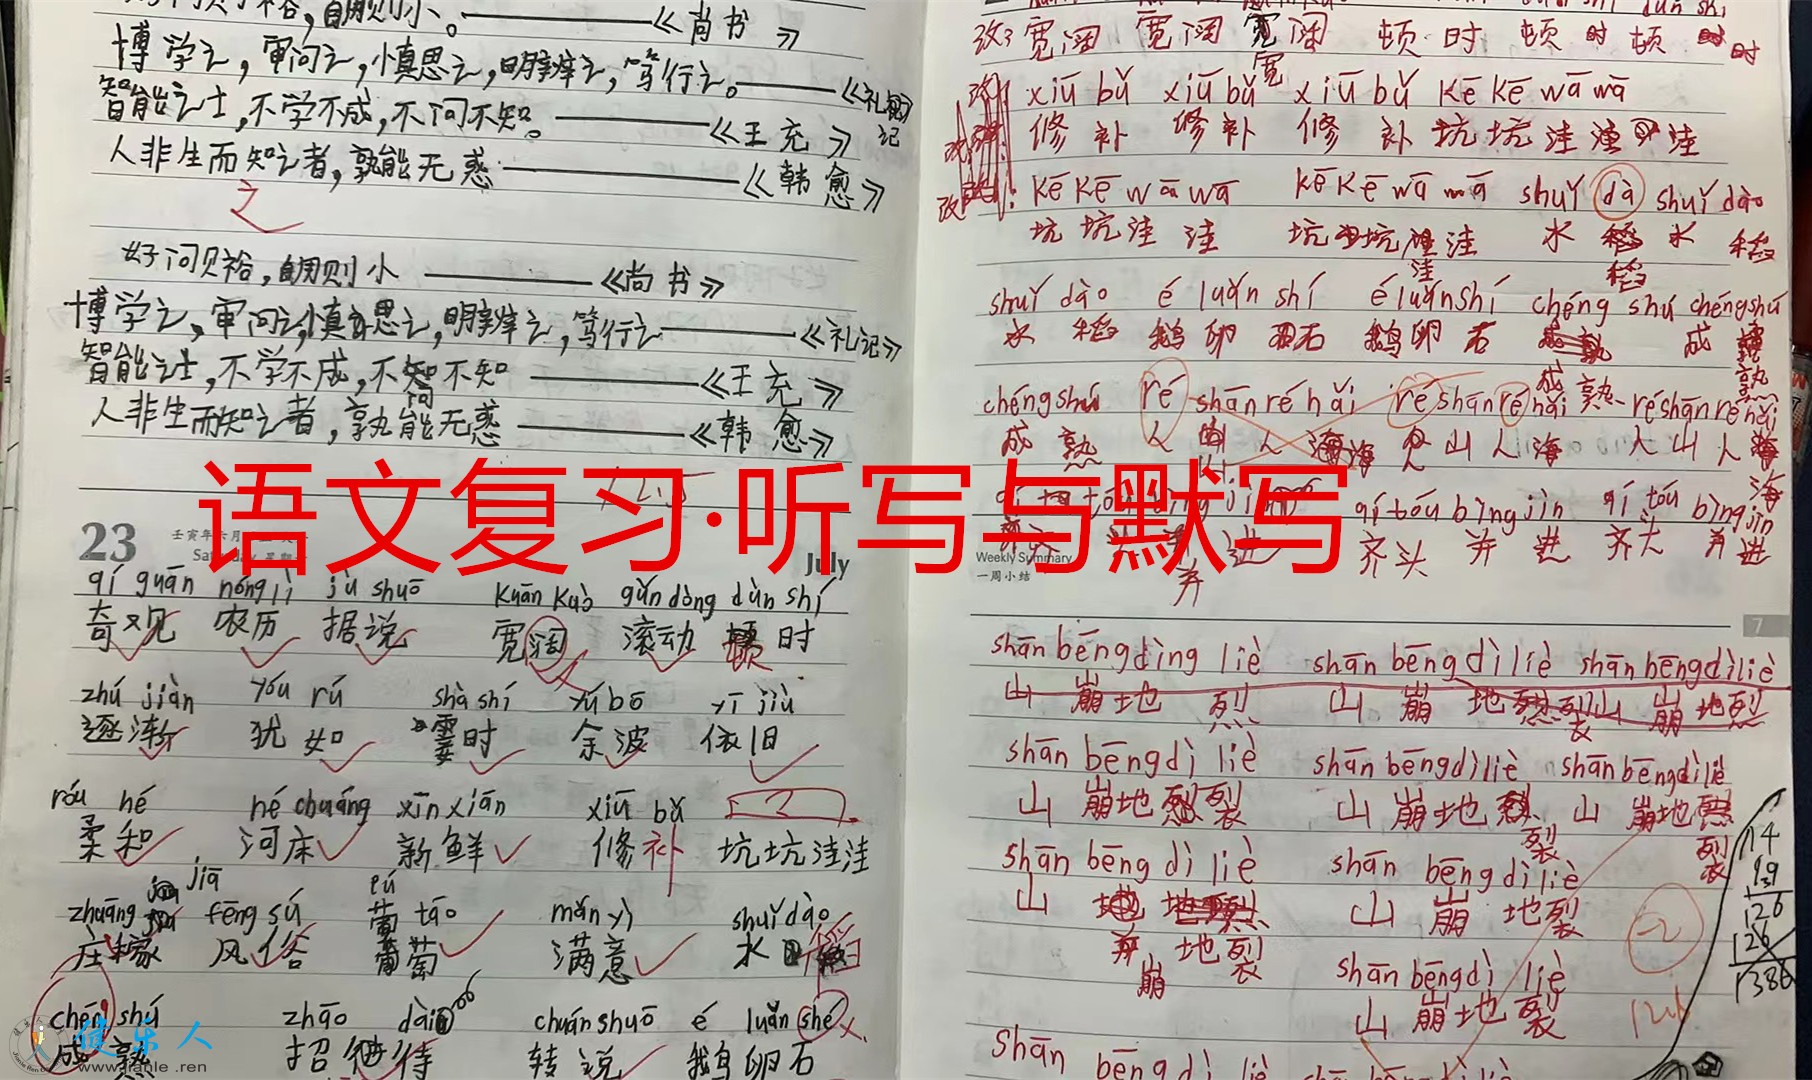 好问则裕，自用则小。——《尚书》
博学之，审问之，慎思之，明辨之，笃行之。——《礼记》
智能之士，不学不成，不问不知。——《王充》
人非生而知之者，孰能无惑——《韩愈》
之
好问则裕，自用则小——《尚书》
博学之，审问之，慎思之，明辨之，笃行之——《礼记》
智能之士，不学不成，不问不知——《王充》
人非生而知之者，孰能无惑——《韩愈》
语文复习·听写与默写
23
壬寅年六月
Saturday 星期六
July
qí guān nóng lì jù shuō kuān kuò gǔn dòng dùn shí
奇观 农历 据说 宽阔 滚动 顿时
zhú jiàn yóu rú shà shí yú bō yī jiù
逐渐 犹如 霎时 余波 依旧
róu hé hé chuáng xīn xiān xiū bǔ
柔和 河床 新鲜 修补 坑坑洼洼
zhuāng jiā fēng sú pú táo mǎn yì shuǐ dào
庄稼 风俗 葡萄 满意 水稻
chén shú zhāo dài chuán shuō é luǎn shé
成熟 招待 转说 鹅卵石
改：宽阔 宽阔 宽阔 顿时 顿时 顿时
宽
改 xiū bǔ xiū bǔ xiū bǔ kē kē wā wā
修补 修补 修补 坑坑洼洼 洼
改 kē kē wā wā kē kē wā wā shuǐ dà shuǐ dào
坑坑洼洼 坑坑洼洼 水稻 水稻
洼 稻
shuǐ dào é luǎn shí é luǎn shí chéng shú chéng shú
水稻 鹅卵石 鹅卵石 成熟 成熟
成熟 熟
chéng shú ré shān ré hǎi ré shān ré hǎi ré shān ré hǎi
成熟 人山人海 人山人海 人山人海
海
qí tóu bìng jìn qí tóu bìng jìn qí tóu bìng jìn
齐头并进 齐头并进 齐头并进
并
Weekly Summary
一周小结
7
shān bēng dìng liè shān bēng dì liè shān bēng dì liè
山崩地烈 山崩地烈 山崩地烈
裂
shān bēng dì liè shān bēng dì liè shān bēng dì liè
山崩地裂 山崩地裂 山崩地裂
shān bēng dì liè shān bēng dì liè
山崩地裂 山崩地裂
崩
shān bēng dì liè
山崩地裂
shān bēng dì liè
14
126
126
1386
健乐人
www.jianle.ren